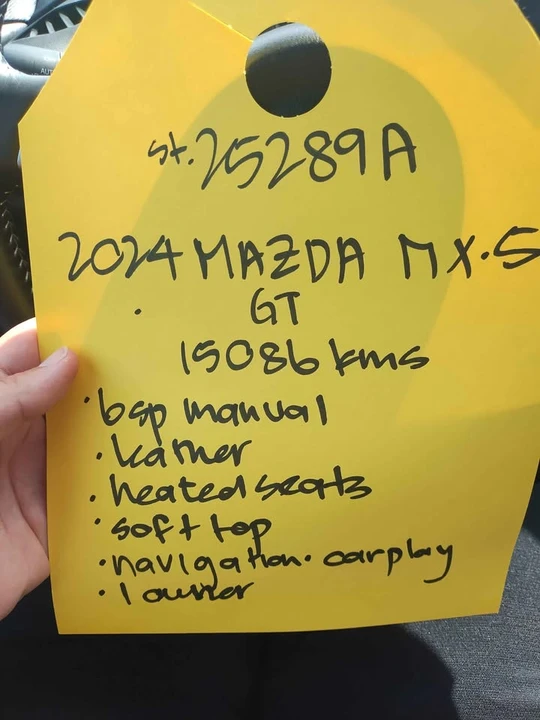 st. 25289A
2024 MAZDA MX-5
GT
15086 kms
· 6sp manual
· leather
· heated seats
· soft top
· navigation · carplay
· 1 owner